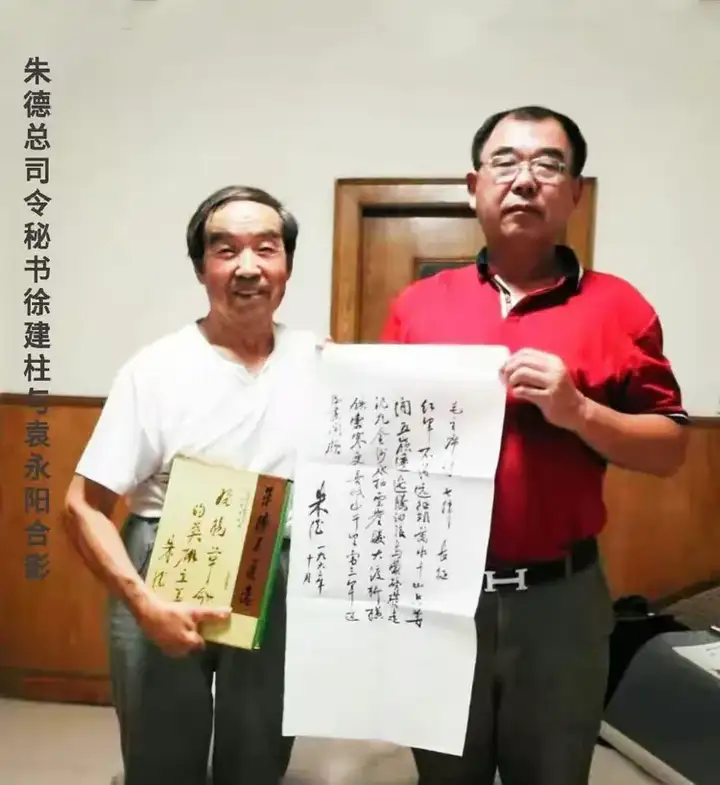 朱德总司令秘书徐建柱与袁永阳合影
毛主席诗七律 长征
红军不怕远征难万水千山只等
闲五岭逶迤腾细浪乌蒙磅礴走
泥丸金沙水拍云崖暖大渡桥横
铁索寒更喜岷山千里雪三军过
后尽开颜
朱德
十月
革命
的英雄主义
朱德
H